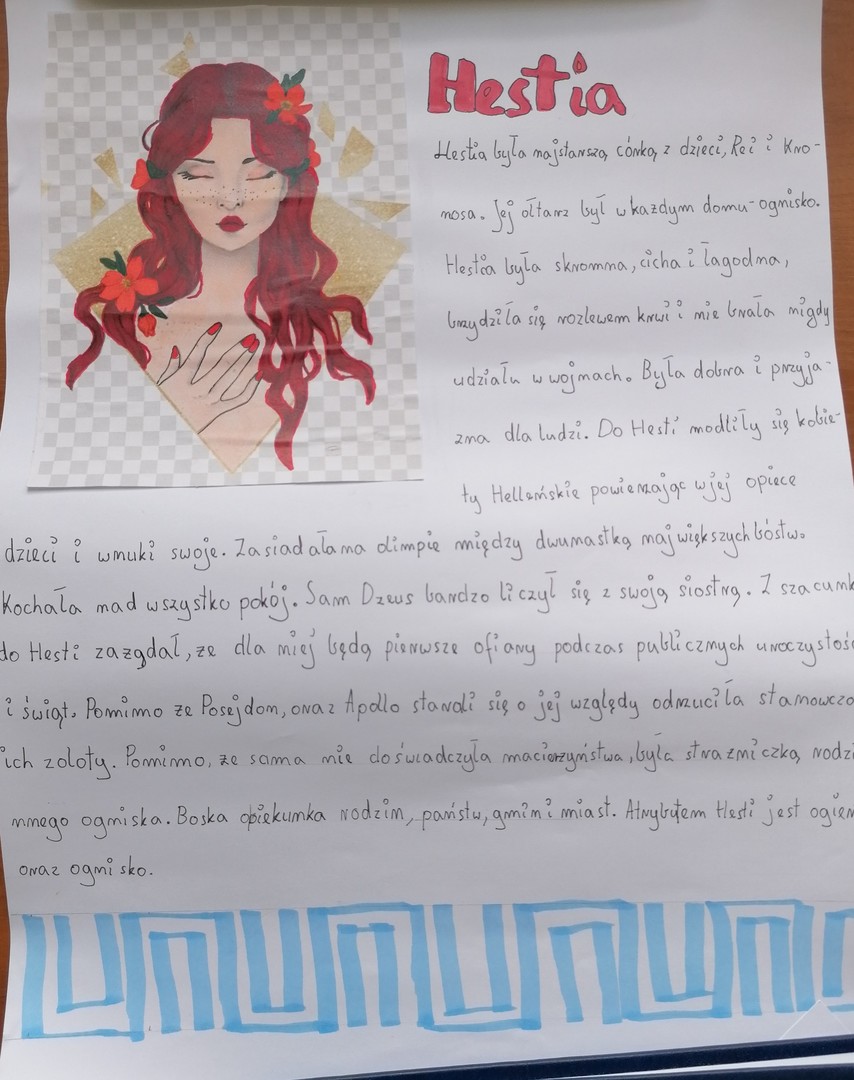 Hestia
Hestia była najstarszą córką z dzieci, Rei i Kro-
nosa. Jej ołtarz był w każdym domu - ognisko.
Hestia była skromna, cicha i łagodna,
brzydziła się rozlewem krwi i nie brała nigdy
udziału w wojnach. Była dobra i przyja-
zna dla ludzi. Do Hesti modliły się kobie-
ty Helleńskie powierzając w jej opiece
dzieci i wnuki swoje. Zasiadała na olimpie między dwunastką największych bóstw.
Kochała nad wszystko pokój. Sam Dzeus bardzo liczył się z swoją siostrą. Z szacunk
do Hesti zażądał, że dla niej będą pierwsze ofiary podczas publicznych uroczystośc
i świąt. Pomimo że Posejdon, oraz Apollo starali się o jej względy odrzuciła stanowczo
ich zaloty. Pomimo, że sama nie doświadczyła macierzyństwa, była strażniczką rodzi
nnego ogniska. Boska opiekunka rodzin, państw, gmin i miast. Atrybutem Hesti jest ogień
oraz ognisko.